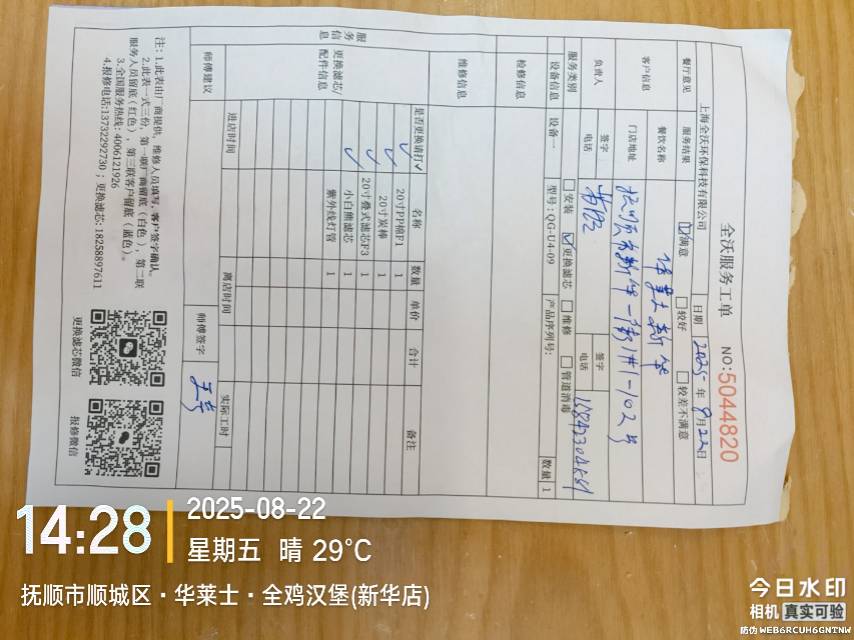 全沃服务工单 NO:5044820
上海全沃环保科技有限公司 日期 2025年 8月22日
餐厅意见 服务结果 ☑满意 □较好 □较差不满意
客户信息 餐饮名称 华莱士新华
门店地址 抚顺市新华一街1#1-102号
负责人 签字 签字
电话 电话
服务类别 □安装 ☑更换滤芯 □维修 □管道消毒
设备信息 设备一 型号:QG-U4-09 产品序列号: 数量 1
检修信息
维修信息
服务信息
更换滤芯/配件信息
是否更换请打✓ 名称 数量 单价 合计 备注
✓ 20寸PP棉F1 1
✓ 20寸炭棒 1
✓ 20寸叠式滤芯F3 1
✓ 小白熊滤芯 1
紫外线灯管 1
师傅建议 进店时间 离店时间 实际工时
师傅签字
注:1.此表由厂商提供,维修人员填写,客户签字确认。
2.此表一式三份,第一联厂商留底(白色),第二联
服务人员留底(红色),第三联客户留底(蓝色)。
3.全国服务热线:4006121926
4.报修电话:13732292730;更换滤芯:18258897611
更换滤芯微信
报修微信
14:28
2025-08-22
星期五 晴 29°C
抚顺市顺城区·华莱士·全鸡汉堡(新华店)
今日水印
相机 真实可验
防伪 WEB6RCUH6GNTNW